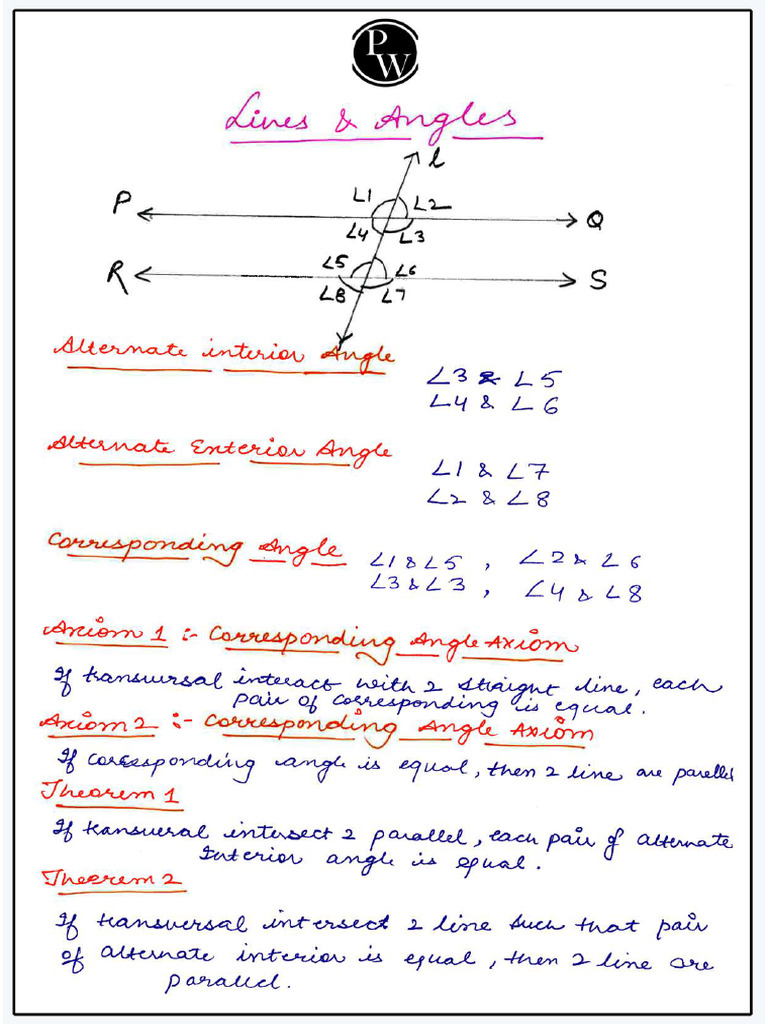 P
W
Lines & Angles
l
P ∠1 ∠2 Q
∠4 ∠3
R ∠5 ∠6 S
∠8 ∠7
Alternate interior Angle
∠3 & ∠5
∠4 & ∠6
Alternate Exterior Angle
∠1 & ∠7
∠2 & ∠8
Corresponding Angle
∠1 & ∠5 , ∠2 & ∠6
∠3 & ∠3 , ∠4 & ∠8
Axiom 1 :- Corresponding Angle Axiom
If transversal interact with 2 straight line, each
pair of corresponding is equal.
Axiom 2 :- Corresponding Angle Axiom
If corresponding angle is equal, then 2 line are parellel
Theorem 1
If transversal intersect 2 parallel, each pair of alternate
Interior angle is equal.
Theorem 2
If transversal intersect 2 line such that pair
of alternate interior is equal, then 2 line are
parallel.